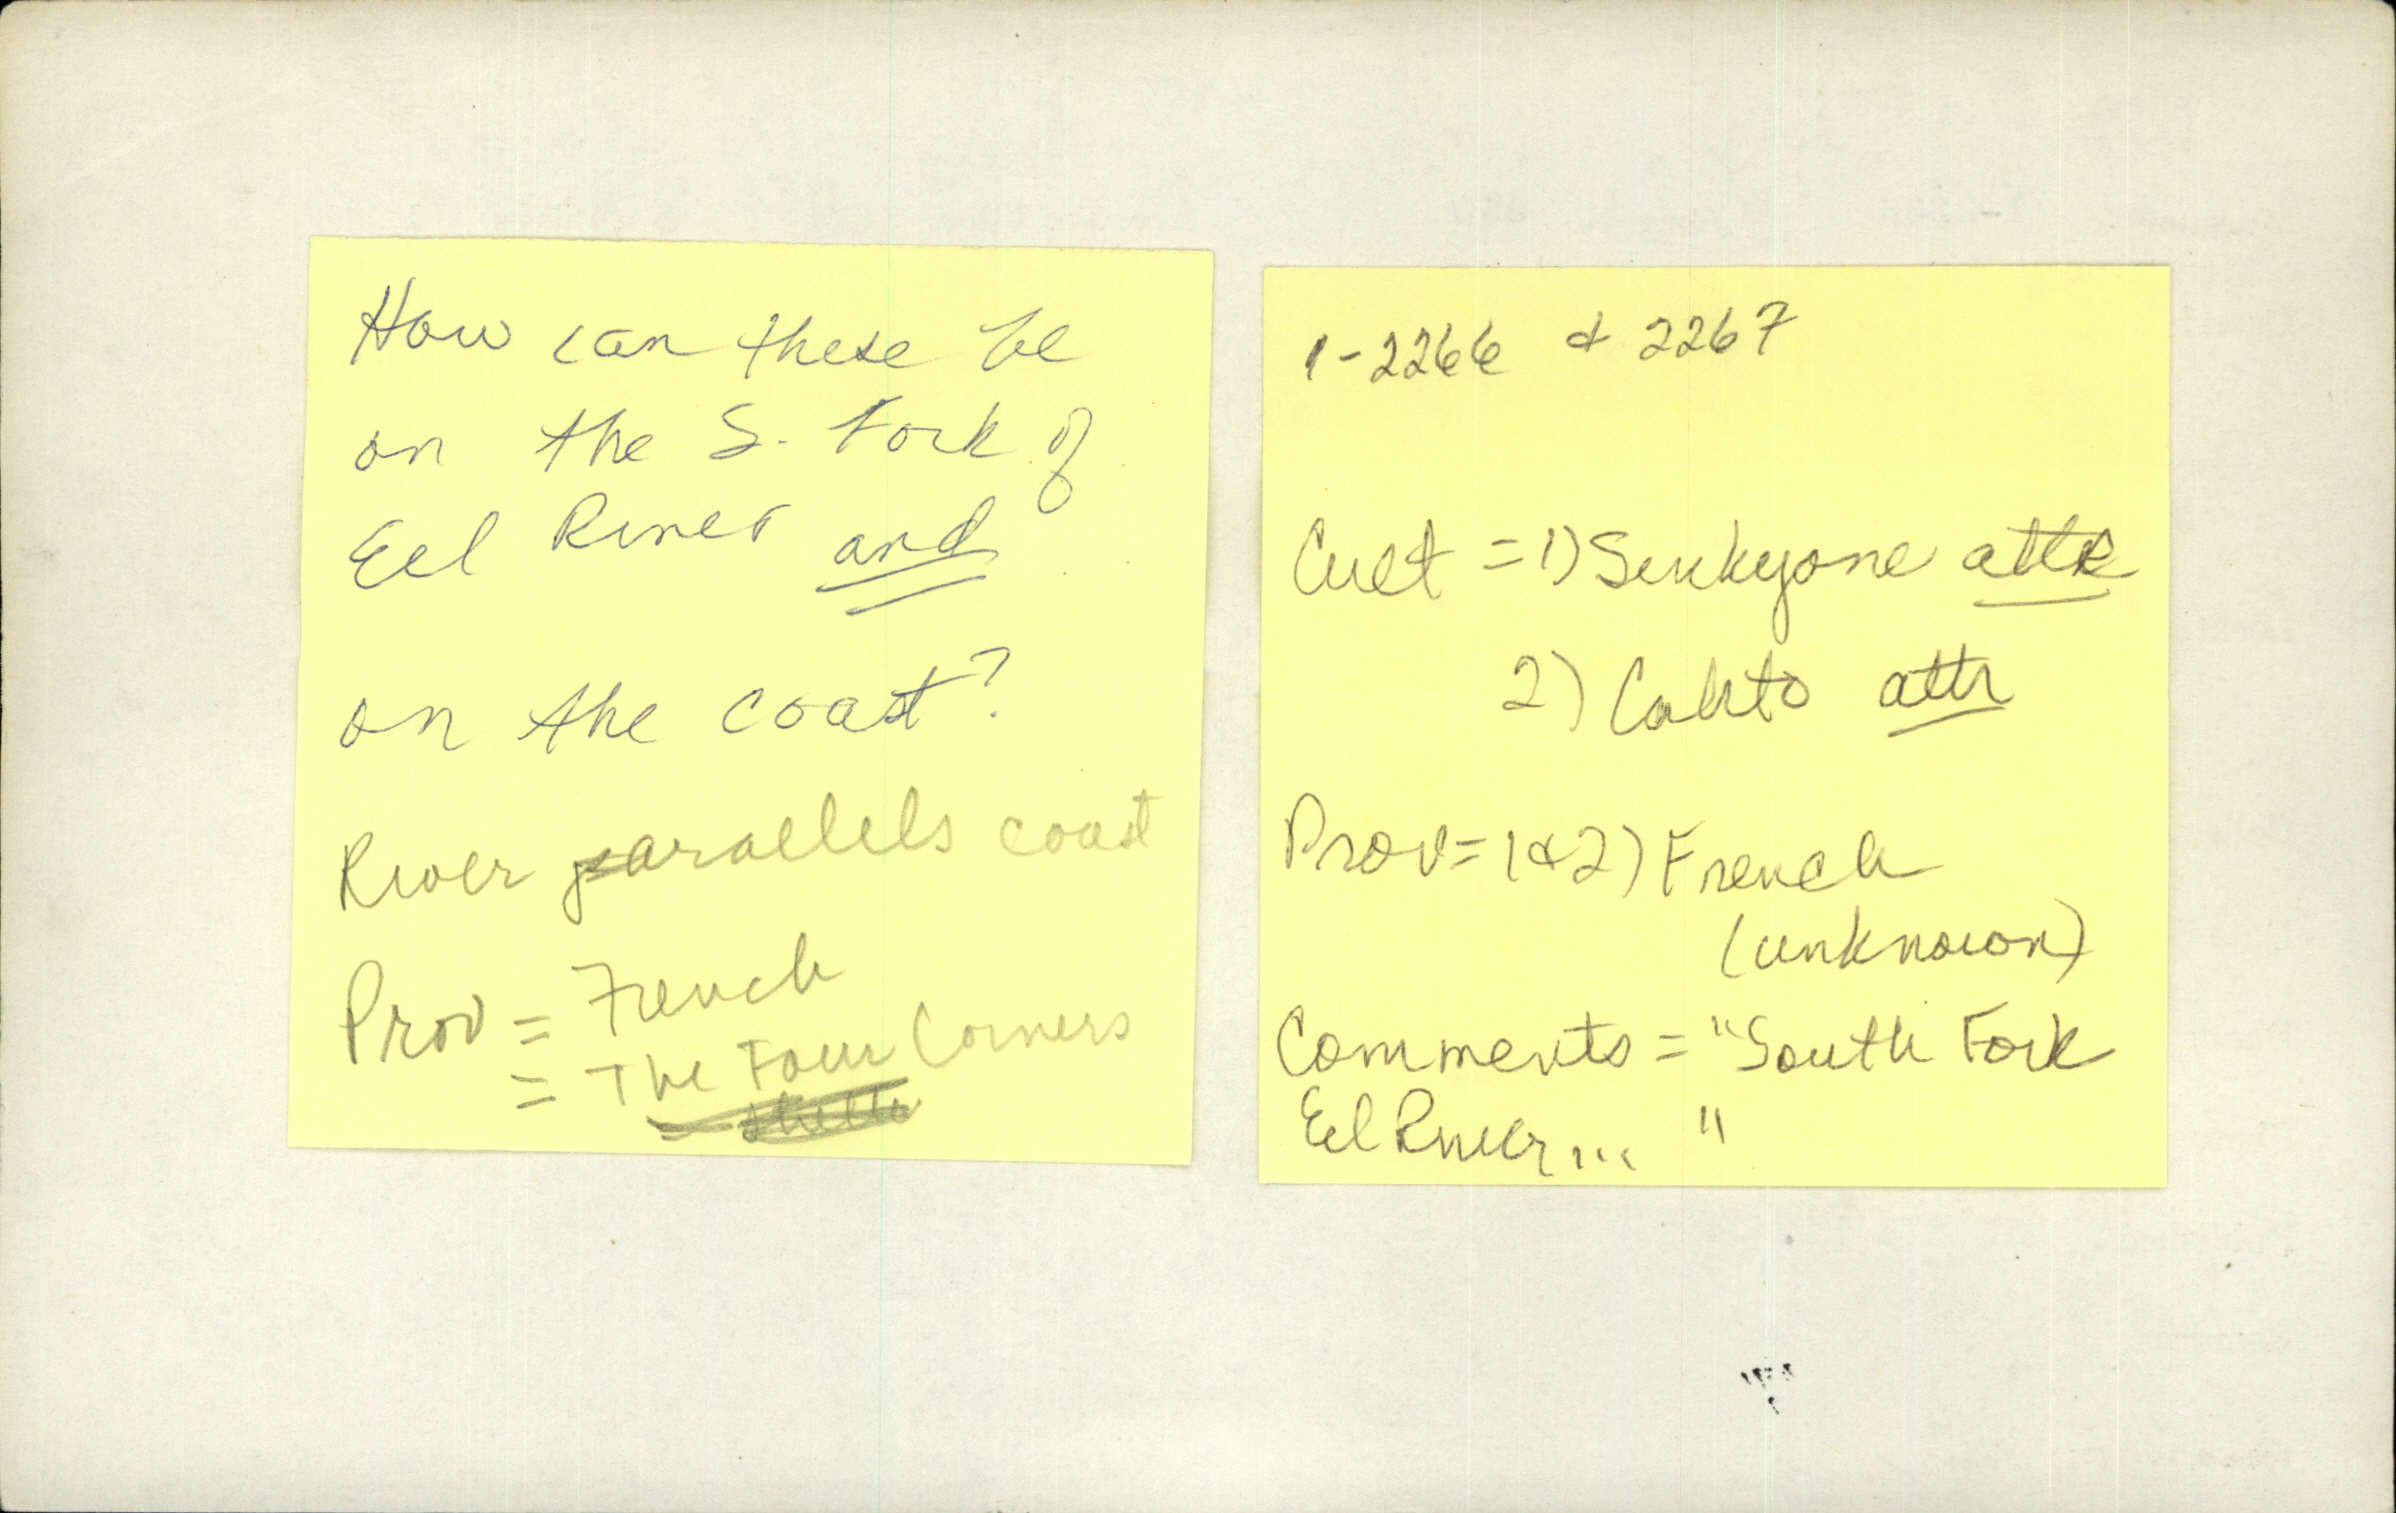 How can these be
on the S. Fork of
Eel River and
on the coast?
River parallels coast
Prov = French
= The Four Corners
1-2266 & 2267
Cult = 1) Sinkyone attr
2) Cahto attr
Prov = 1&2) French
(unknown)
Comments = "South Fork
Eel River... "